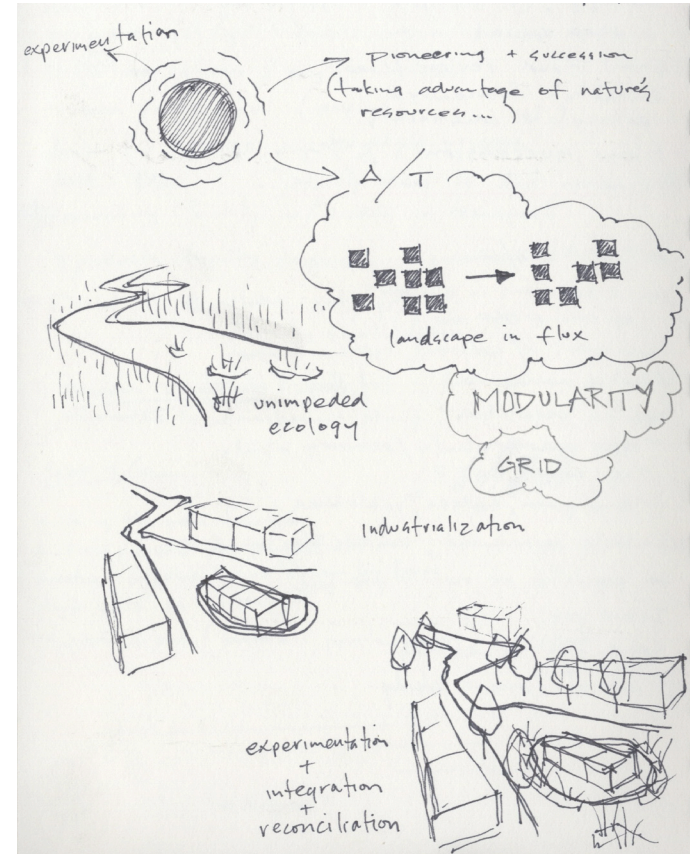 experimentation
pioneering + succession
(taking advantage of nature's
resources...)
Δ/T
landscape in flux
unimpeded
ecology
MODULARITY
GRID
industrialization
experimentation
+
integration
+
reconciliation